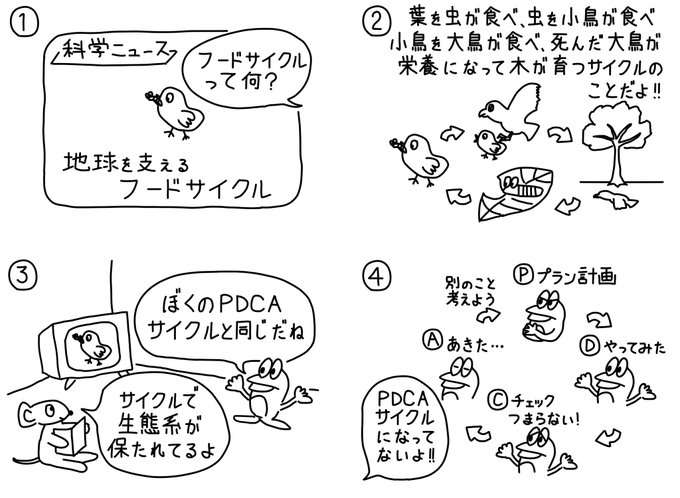 ①
科学ニュース
フードサイクル
って何?
地球を支える
フードサイクル
②
葉を虫が食べ、虫を小鳥が食べ
小鳥を大鳥が食べ、死んだ大鳥が
栄養になって木が育つサイクルの
ことだよ!!
③
ぼくのPDCA
サイクルと同じだね
サイクルで
生態系が
保たれてるよ
④
Ⓟプラン計画
別のこと
考えよう
Ⓐあきた…
Ⓓやってみた
Ⓒチェック
つまらない!
PDCA
サイクル
になって
ないよ!!